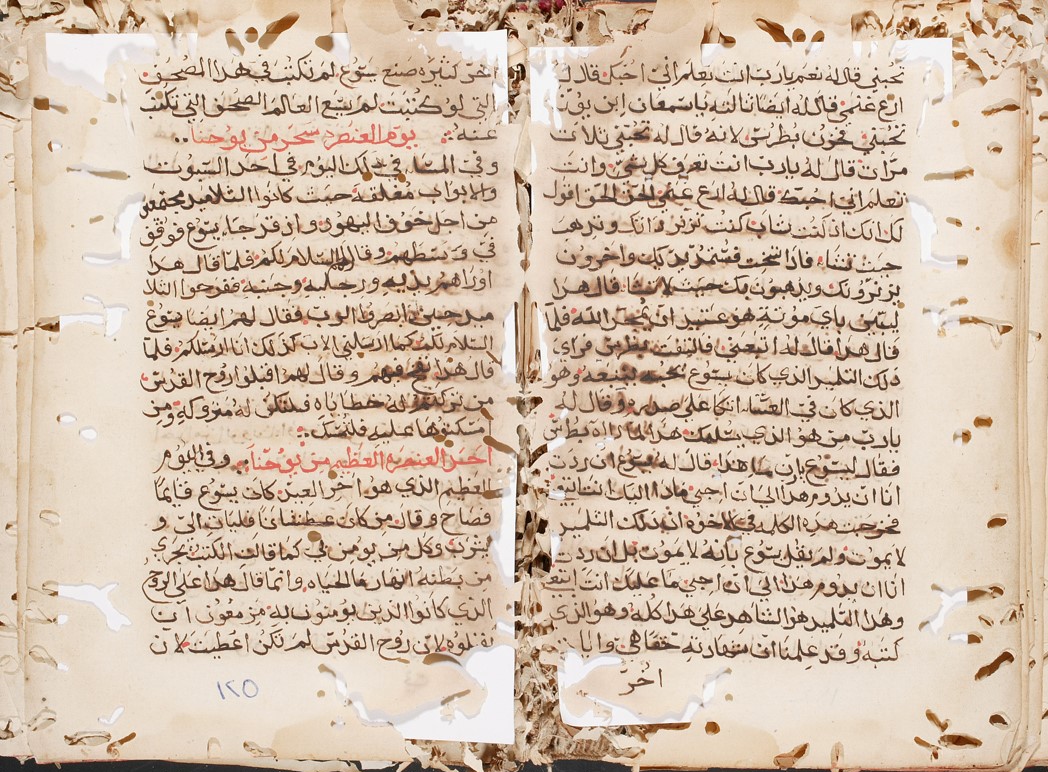 تحبني قال له نعم يارب انت تعلم اني احبك قال له
ارع غنمي قال له ايضا ثالثه ياسمعان ابن يونا
تحبني فحزن بطرس لانه قال له تحبني ثلاث
مرات قال له يارب انت تعرف كل شي وانت
تعلم اني احبك قال له ارع غنمي الحق الحق اقول
لك انك اذ كنت شاب كنت تزنر ذاتك وتذهب
حيث تشا فاذا شخت فستمد يديك واخرون
يزنرونك ويذهبون بك حيث لا تشا قال هذا
ليبين باي موته هو عتيد ان يمجد الله فلما
قال هذا قال له اتبعني فالتفت بطرس فراي
ذلك التلميذ الذي كان يسوع يحبه يتبعه وهو
الذي كان في العشا اتكا على صدره وقال له
يارب من هو الذي يسلمك هذا لما راه بطرس
فقال ليسوع يارب ما هذا قال له يسوع ان ردت
انا ان يدوم هذا الى ان اجي ماذا اليك انت اتبعني
فخرجت هذه الكلمه في الاخوه ان ذلك التلميذ
لا يموت ولم يقل يسوع بانه لا يموت بل ان ردت
انا ان يدوم هذا الى ان اجي ما عليك انت اتبع
وهذا التلميذ هو الشاهد على هذا كله وهو الذي
كتبه وقد علمنا ان شهادته حقا هي وايات
اخر
اخر كثيره صنع يسوع لم تكتب في هذا المصحف
التي لو كتبت لم يسع العالم الصحف التي تكتب
عنه يوم العنصره سحر من يوحنا
وفي المسا في ذلك اليوم في احد السبوت
والابواب مغلقه حيث كانوا التلاميذ مجتمعين
من اجل خوف اليهود واذ قد جا يسوع فوقف
في وسطهم وقال السلام لكم فلما قال هذا
اوراهم يديه ورجليه وجنبه ففرحوا التلا
ميذ حين انصرفوا الرب فقال لهم ايضا يسوع
السلام لكم كما ارسلني الاب كذلك انا ارسلكم فلما
قال هذا نفخ فيهم وقال لهم اقبلوا روح القدس
من تركتم له خطاياه فلتكن له متروكه ومن
امسكتوها عليه فلتمسك
اخر العنصره العظيم من يوحنا وفي اليوم
العظيم الذي هو اخر العيد كان يسوع قايما
فصاح وقال من كان عطشانا فليات الي و
يشرب وكل من يومن في كما قالت الكتب تجري
من بطنه انهار ما الحياه وانما قال هذا على الروح
الذي كانوا الذين يومنون به مزمعون ان
يقبلوه لان روح القدس لم تكن اعطيت لان
١٢٥